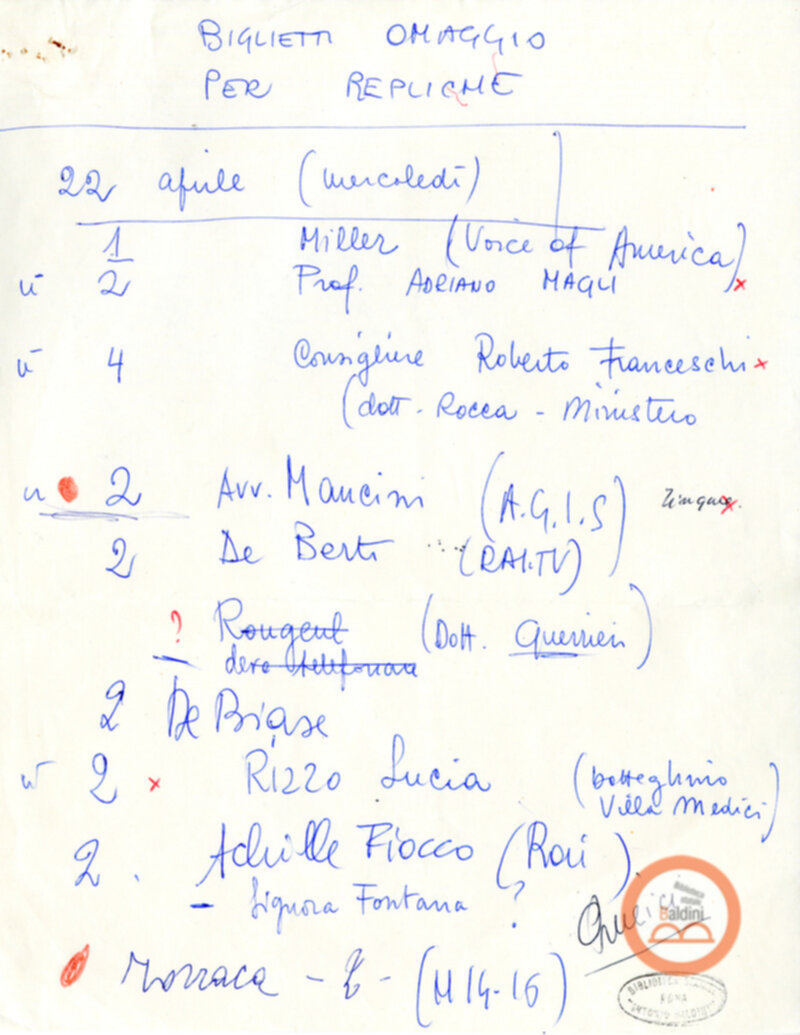 BIGLIETTI OMAGGIO
PER REPLICHE
22 aprile (mercoledì)
1 Miller (Voice of America)
2 Prof. ADRIANO MAGLI x
4 Consigliere Roberto Franceschi x
(dott. Rocca - Ministero
2 Avv. Mancini (A.G.I.S)
2 De Berti (RAI-TV)
? Rougent (Dott. Guerrieri)
deve telefonare
2 De Biase
2 x Rizzo Lucia (botteghino
Villa Medici)
2. Achille Fiocco (Rai).
- Signora Fontana ?
Biblioteca
statale
Baldini
- 2 - (M 14-16)
BIBLIOTECA
ROMA
ANTONIO BALDINI